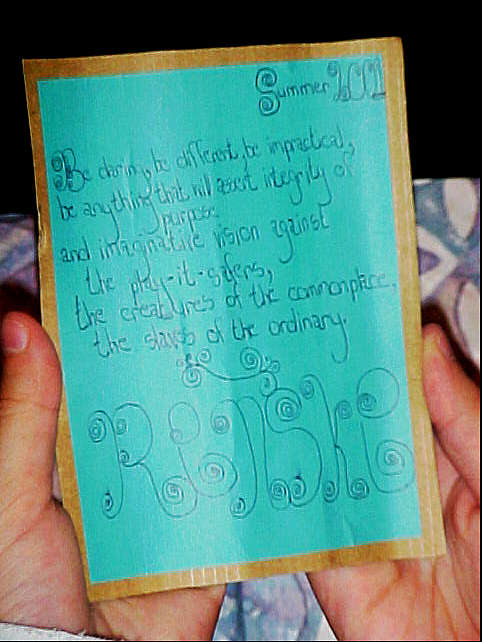 Summer 2001
Be daring, be different, be impractical,
be anything that will assert integrity of
purpose
and imaginative vision against
the play-it-safers,
the creatures of the commonplace,
the slaves of the ordinary.
Rienske